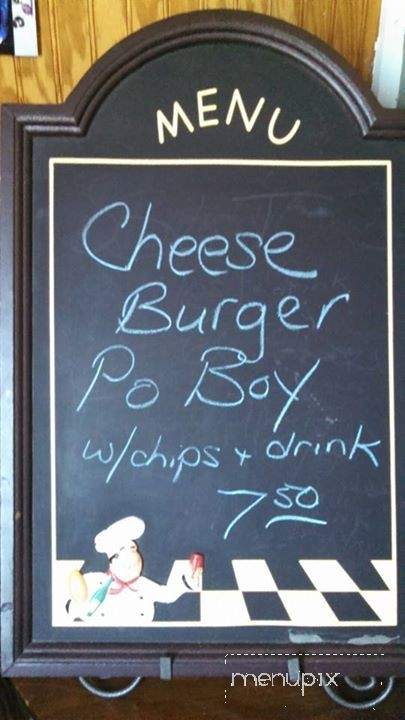 MENU
Cheese
Burger
Po Boy
w/chips + drink
7 50
menupix